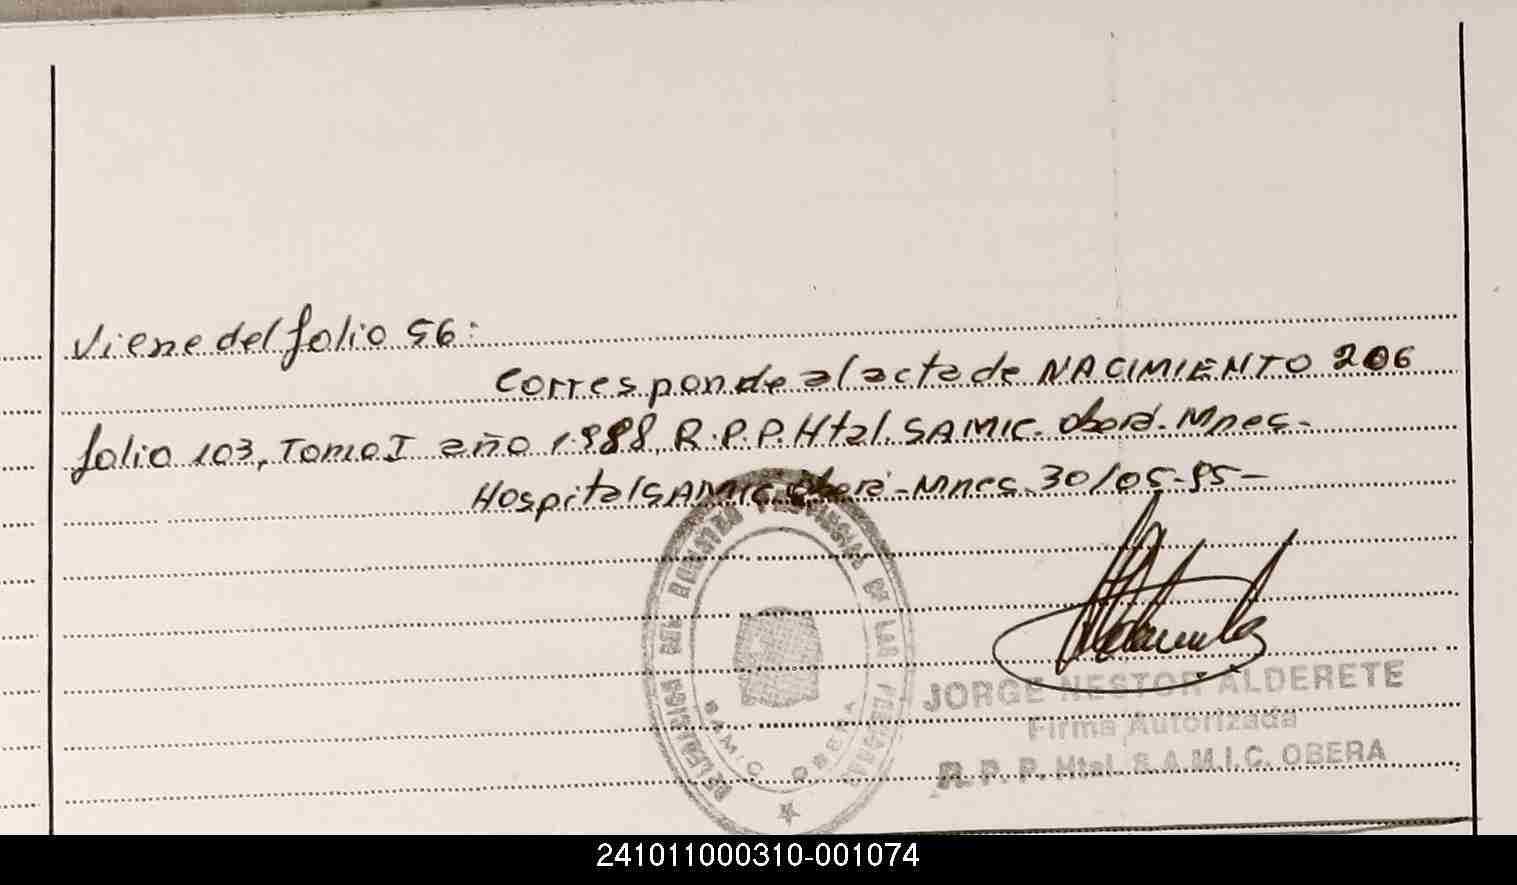 Viene del folio 56:
Corresponde al acta de NACIMIENTO 206
folio 103, Tomo I año 1.988, R.P.P. Htal. SAMIC. Oberá. Mnes.-
Hospital SAMIC Oberá - Mnes. 30/05-95-
REGISTRO PROVINCIAL DE LAS PERSONAS
SAMIC OBERA
JORGE NESTOR ALDERETE
Firma Autorizada
R. P. P. Htal. S.A.M.I.C. OBERA
241011000310-001074